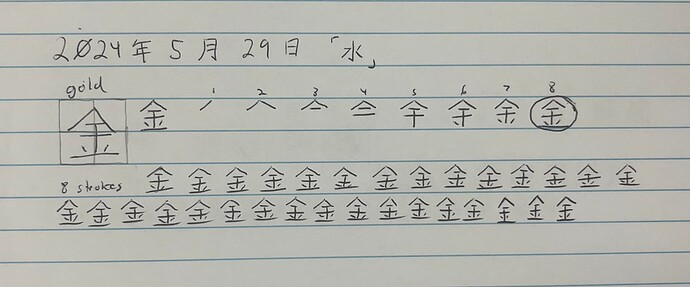 2024年5月29日「水」
gold 1 2 3 4 5 6 7 8
金 金 金
8 strokes 金 金 金 金 金 金 金 金 金 金 金 金 金 金
金 金 金 金 金 金 金 金 金 金 金 金 金 金 金 金 金